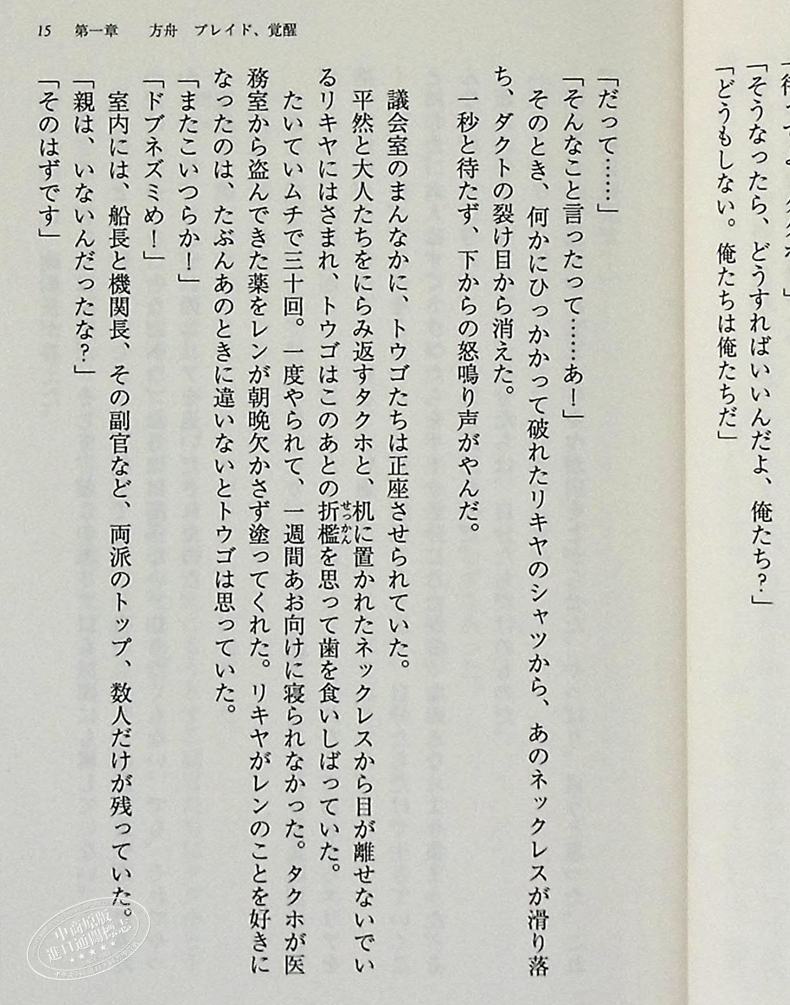 「そうなったら、どうすればいいんだよ、俺たち？」
「どうもしない。俺たちは俺たちだ」
15　第一章　方舟　ブレイド、覚醒
「だって……」
「そんなこと言ったって……あ！」
そのとき、何かにひっかかって破れたリキヤのシャツから、あのネックレスが滑り落
ち、ダクトの裂け目から消えた。
一秒と待たず、下からの怒鳴り声がやんだ。
議会室のまんなかに、トウゴたちは正座させられていた。
平然と大人たちをにらみ返すタクホと、机に置かれたネックレスから目が離せないでい
るリキヤにはさまれ、トウゴはこのあとの折檻を思って歯を食いしばっていた。
せっかん
たいていムチで三十回。一度やられて、一週間あお向けに寝られなかった。タクホが医
務室から盗んできた薬をレンが朝晩欠かさず塗ってくれた。リキヤがレンのことを好きに
なったのは、たぶんあのときに違いないとトウゴは思っていた。
「またこいつらか！」
「ドブネズミめ！」
室内には、船長と機関長、その副官など、両派のトップ、数人だけが残っていた。
「親は、いないんだったな？」
「そのはずです」
中商原版
進口通關標志